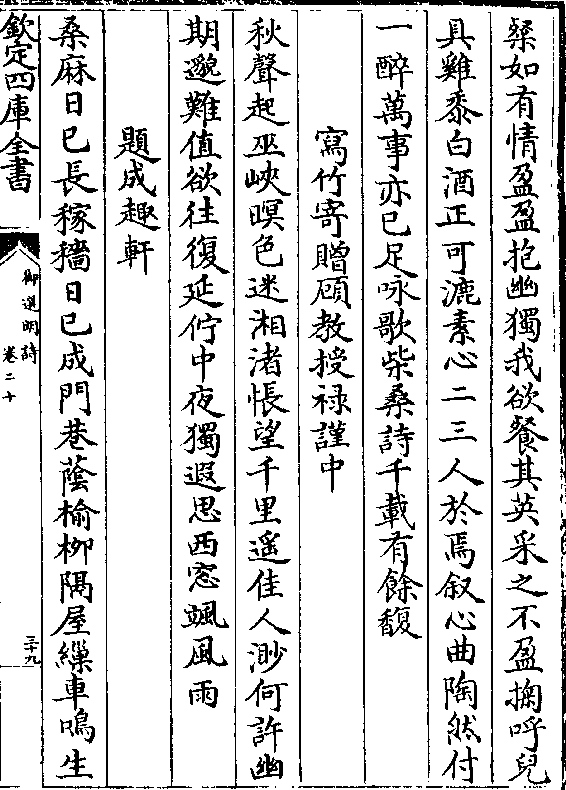 粲如有情盈盈抱幽獨我欲餐其英采之不盈掬呼兒
具雞黍白酒正可漉素心二三人於焉叙心曲陶然付
一醉萬事亦已足咏歌柴桑詩千載有餘馥
寫竹寄贈顧教授禄謹中
秋聲起巫峽暝色迷湘渚悵望千里遥佳人渺何許幽
期邈難值欲往復延佇中夜獨遐思西窓颯風雨
題成趣軒
桑麻日已長稼穡日已成門巷蔭榆柳隔屋繅車鳴生
欽定四庫全書
御選明詩
卷二十
三十九